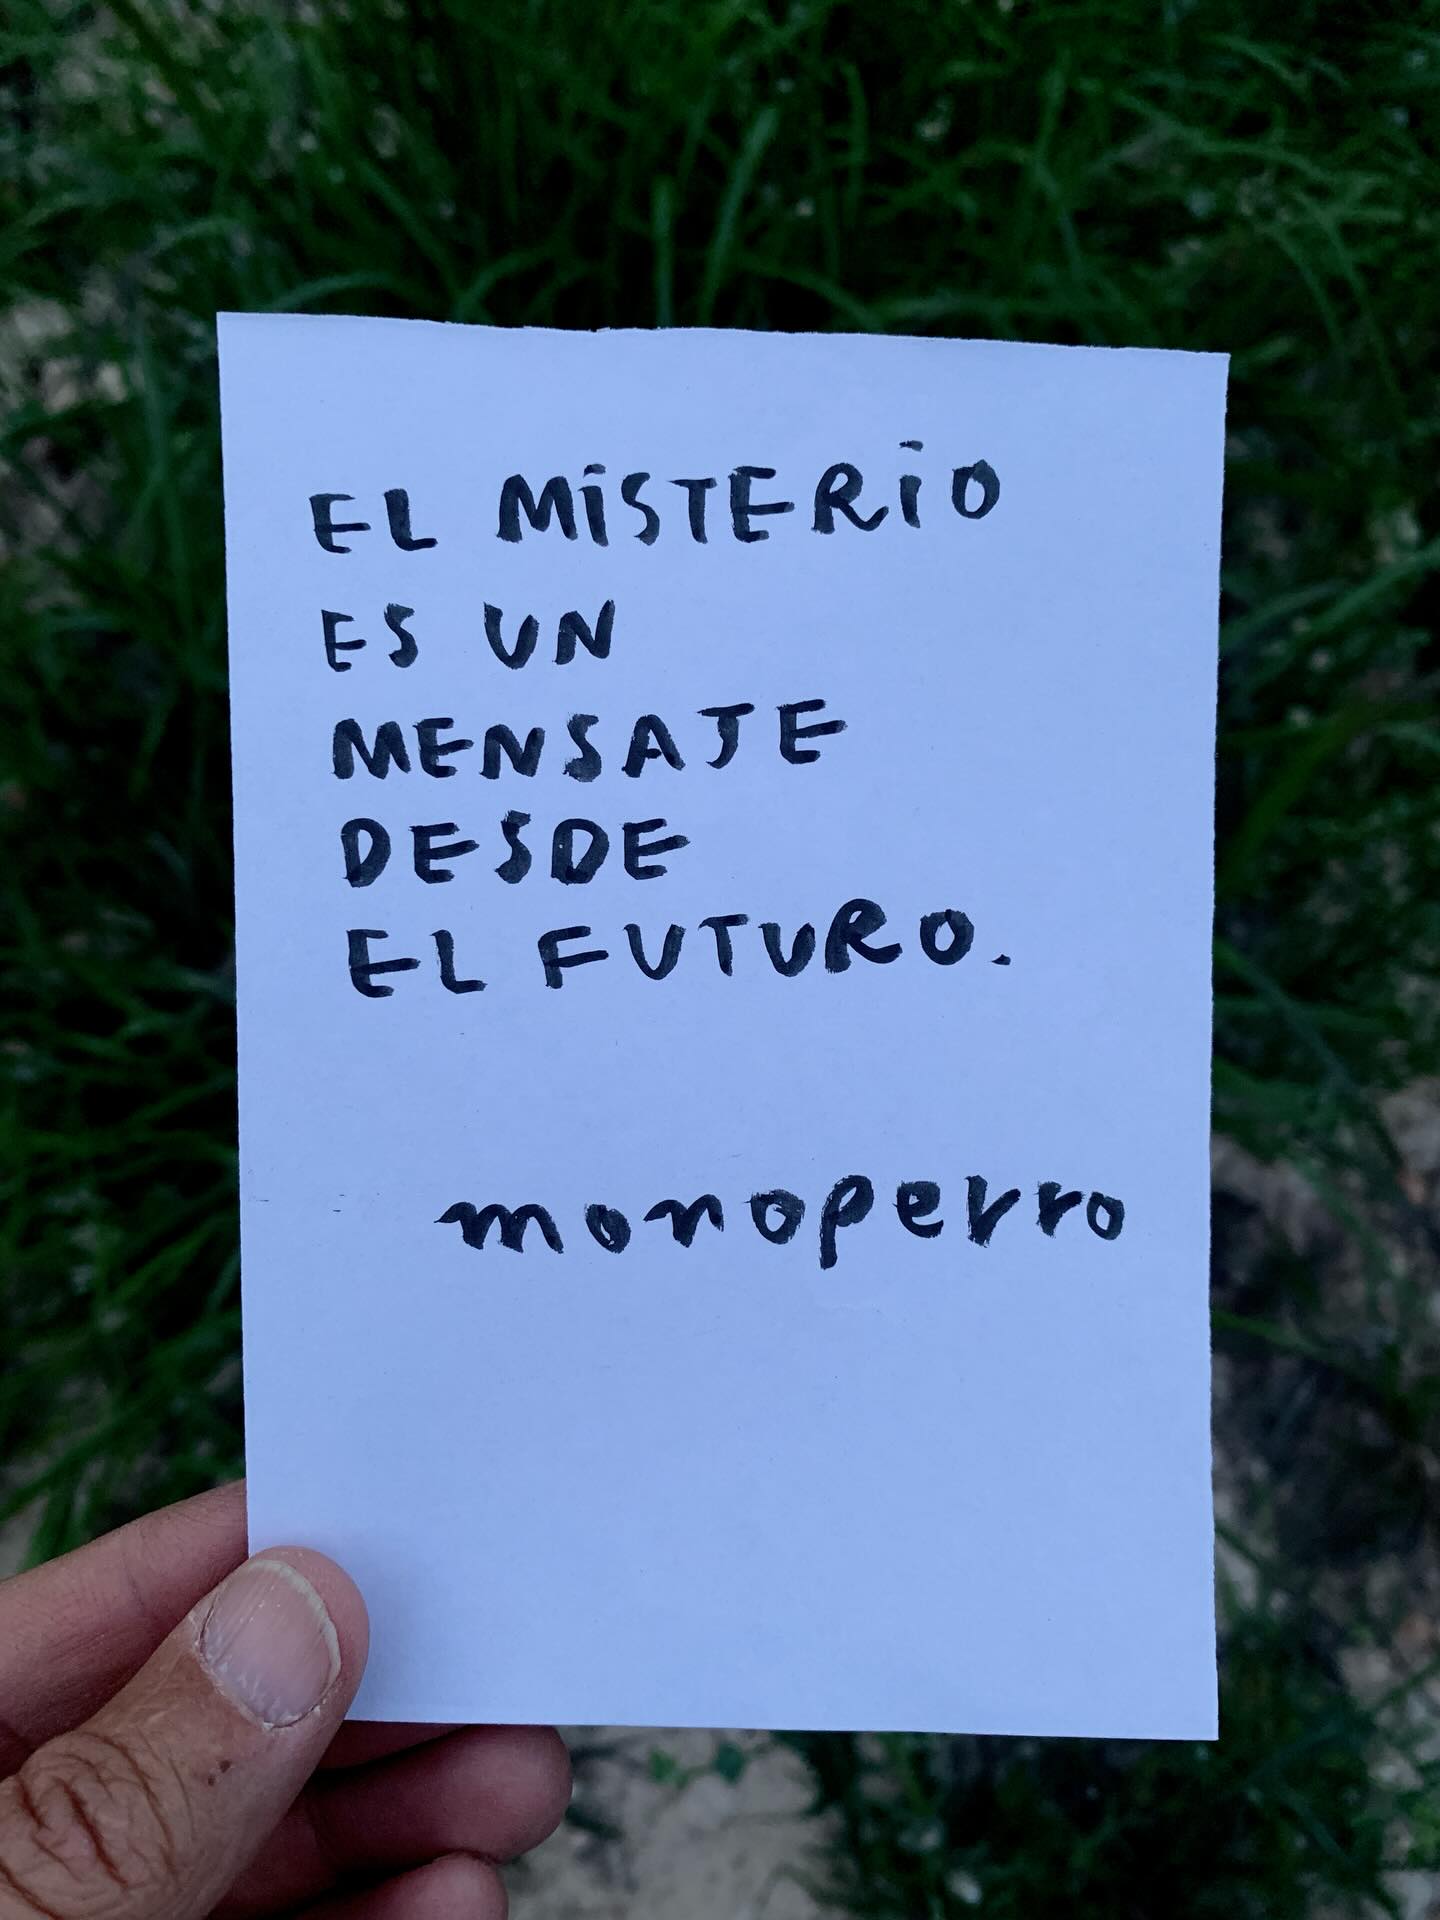 EL MiSTERiO
ES UN
MENSAJE
DESDE
EL FUTURO.
monoperro